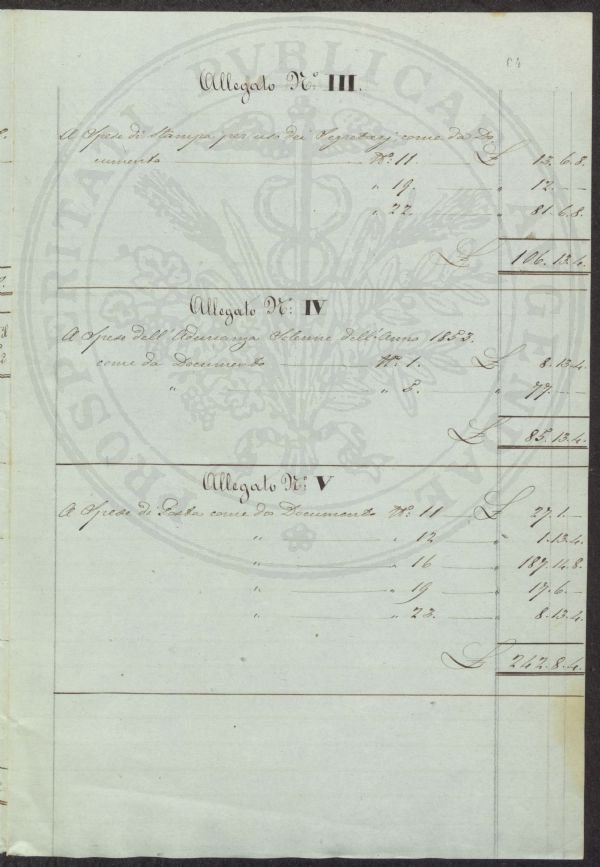 64
Allegato N.º III.
A Spese di Stampa per uso dei Segretarj come da Do
cumento N.º 11. £ 13. 6. 8.
" 19. " 12. —
" 22. " 81. 6. 8.
£ 106. 13. 4.
Allegato N.º IV
A Spese dell'Adunanza Solenne dell'Anno 1853.
come da Documento N.º 1. £ 8. 13. 4.
" " 5. " 77. —
£ 85. 13. 4.
Allegato N.º V
A Spese di Posta come da Documento N.º 11 £ 27. 1. —
" " 12 " 1. 13. 4.
" " 16 " 187. 14. 8.
" " 19 " 17. 6. —
" " 23. " 8. 13. 4.
£ 242. 8. 4.
PROSPERITATI PVBLICAE AVGENDAE